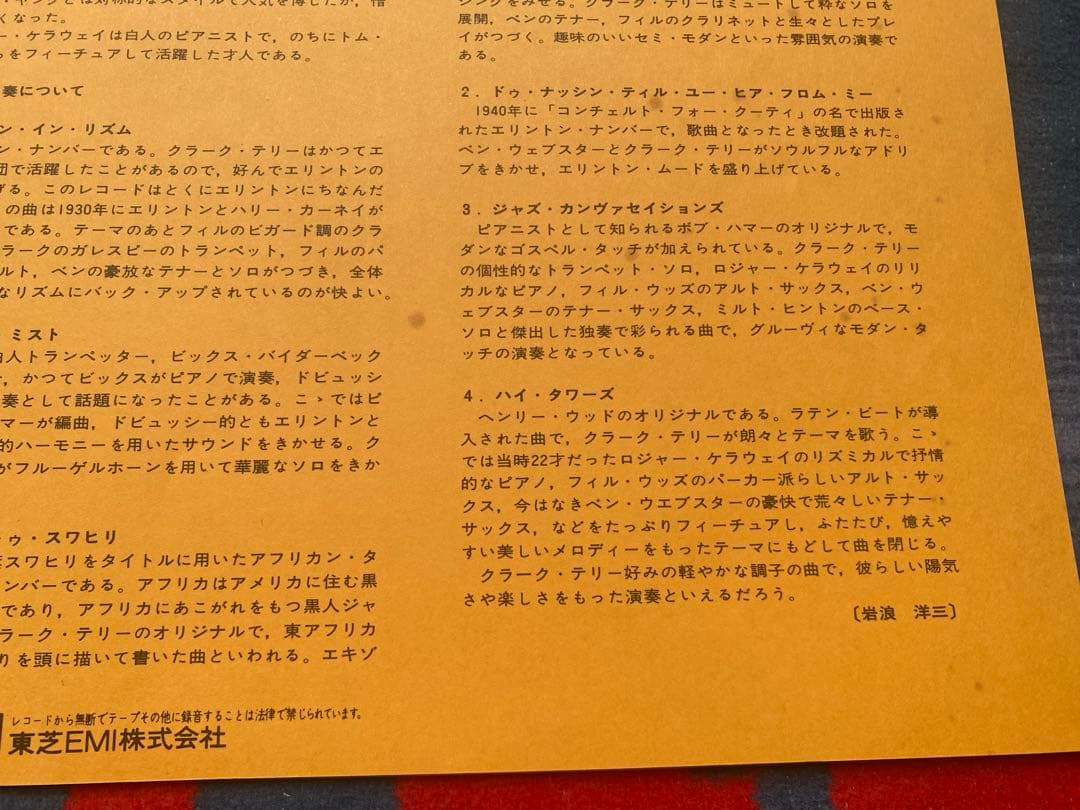 くなった。
ー・ケラウェイは白人のピアニストで，のちにトム・
らをフィーチュアして活躍した才人である。
奏について
ン・イン・リズム
ン・ナンバーである。クラーク・テリーはかつてエ
団で活躍したことがあるので，好んでエリントンの
げる。このレコードはとくにエリントンにちなんだ
の曲は1930年にエリントンとハリー・カーネイが
である。テーマのあとフィルのビガード調のクラ
ラークのガレスピーのトランペット，フィルのパ
ルト，ベンの豪放なテナーとソロがつづき，全体
なリズムにバック・アップされているのが快よい。
ミスト
白人トランペッター，ビックス・バイダーベック
，かつてビックスがピアノで演奏，ドビュッシ
奏として話題になったことがある。こゝではピ
マーが編曲，ドビュッシー的ともエリントンと
的ハーモニーを用いたサウンドをきかせる。ク
がフルーゲルホーンを用いて華麗なソロをきか
ゥ・スワヒリ
スワヒリをタイトルに用いたアフリカン・タ
ンバーである。アフリカはアメリカに住む黒
であり，アフリカにあこがれをもつ黒人ジャ
ラーク・テリーのオリジナルで，東アフリカ
りを頭に描いて書いた曲といわれる。エキゾ
レコードから無断でテープその他に録音することは法律で禁じられています。
東芝EMI株式会社
シングをみせる。クラーク・テリーはミュートして粋なソロを
展開，ベンのテナー，フィルのクラリネットと生々としたプレ
イがつづく。趣味のいいセミ・モダンといった雰囲気の演奏で
ある。
2．ドゥ・ナッシン・ティル・ユー・ヒア・フロム・ミー
1940年に「コンチェルト・フォー・クーティ」の名で出版さ
れたエリントン・ナンバーで，歌曲となったとき改題された。
ベン・ウェブスターとクラーク・テリーがソウルフルなアドリ
ブをきかせ，エリントン・ムードを盛り上げている。
3．ジャズ・カンヴァセイションズ
ピアニストとして知られるボブ・ハマーのオリジナルで，モ
ダンなゴスペル・タッチが加えられている。クラーク・テリー
の個性的なトランペット・ソロ，ロジャー・ケラウェイのリリ
カルなピアノ，フィル・ウッズのアルト・サックス，ベン・ウ
ェブスターのテナー・サックス，ミルト・ヒントンのベース・
ソロと傑出した独奏で彩られる曲で，グルーヴィなモダン・タ
ッチの演奏となっている。
4．ハイ・タワーズ
ヘンリー・ウッドのオリジナルである。ラテン・ビートが導
入された曲で，クラーク・テリーが朗々とテーマを歌う。こゝ
では当時22才だったロジャー・ケラウェイのリズミカルで抒情
的なピアノ，フィル・ウッズのパーカー派らしいアルト・サッ
クス，今はなきベン・ウエブスターの豪快で荒々しいテナー・
サックス，などをたっぷりフィーチュアし，ふたたび，憶えや
すい美しいメロディーをもったテーマにもどして曲を閉じる。
クラーク・テリー好みの軽やかな調子の曲で，彼らしい陽気
さや楽しさをもった演奏といえるだろう。
〔岩浪　洋三〕